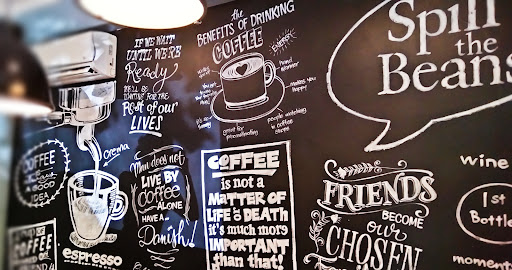 IF WE WAIT
UNTIL WE'RE
Ready
WE'LL BE
WAITING FOR THE
Rest of our
LIVES
the
BENEFITS OF DRINKING
COFFEE
Energy
hand
warmer
makes you
happy
people watching
in coffee
shops
great for
procrastinating
Spill
the
Beans
COFFEE
IS
ALWAYS
A GOOD
IDEA
Crema
espresso
Man does not
LIVE BY
Coffee
ALONE
HAVE A
Danish!
COFFEE
is not a
MATTER OF
LIFE & DEATH
it's much more
IMPORTANT
than that!
FRIENDS
BECOME
our
CHOSEN
wine
1st
Bottle
moment
COFFEE